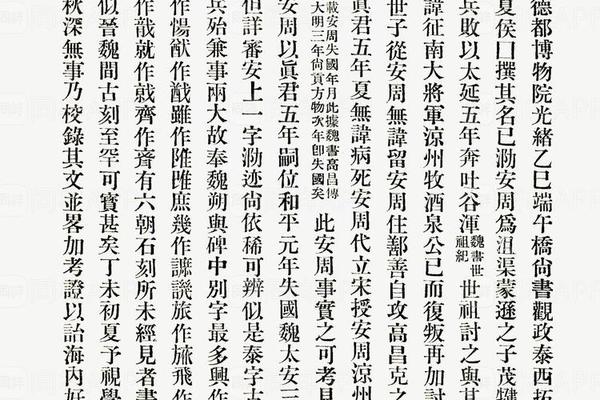 德都博物院光緒乙巳端午橋尙書觀政泰西拓
夏侯囗撰其名已泐安周爲沮渠蒙遜之子茂
兵敗以太延五年奔吐谷渾魏書世祖紀世祖討之與其
諱征南大將軍涼州牧酒泉公已而復叛再加討
世子從安周無諱留安周住鄯善自攻高昌克之
眞君五年夏無諱病死安周代立宋授安周涼州
載安周失國年月此據魏書高昌傳
大明三年尙貢方物次年卽失國矣
此安周事實之可考見
安周以眞君五年嗣位和平元年失國魏太安三
但詳審安上一字泐迹尙依稀可辨似是泰字古
兵殆兼事兩大故奉魏朔與碑中別字最多興作
作惕猷作雖作庶幾作旅作飛作
作哉就作齊作有六朝石刻所未經見者書
似晉魏間古刻至罕可寶甚矣丁未初夏予視學
秋深無事乃校錄其文並畧加考證以詒海內好